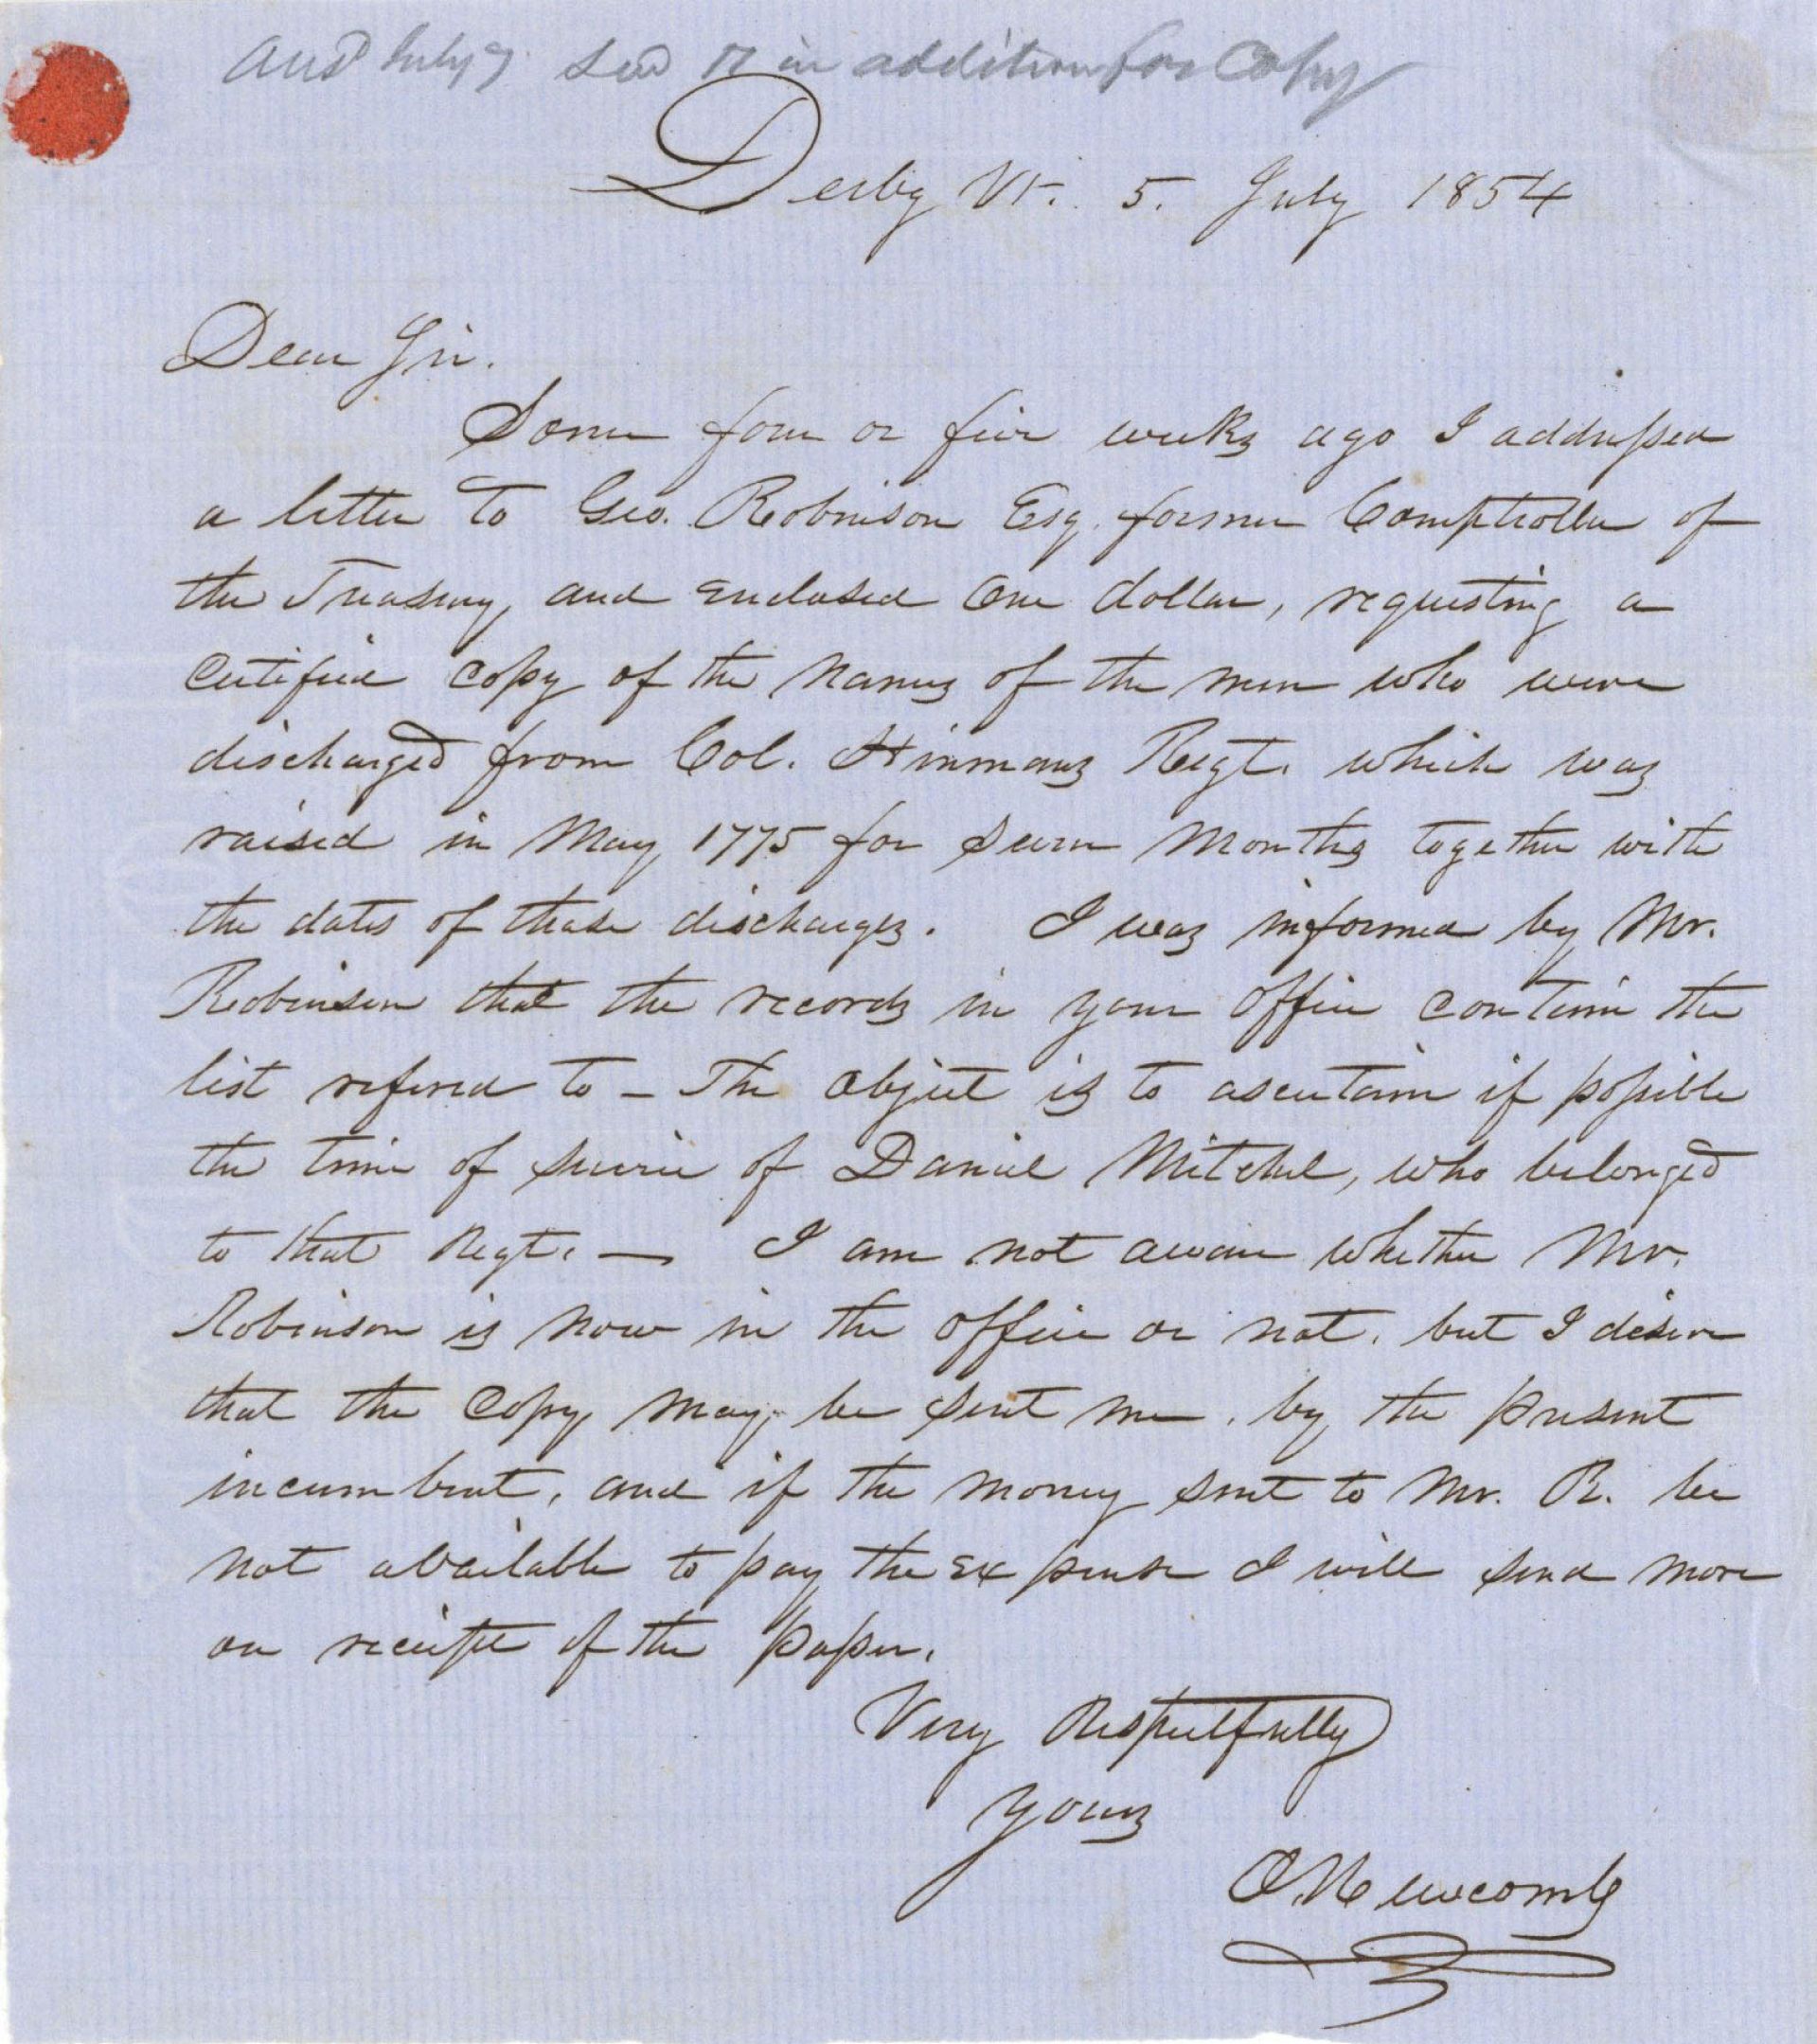 Ansd July 7 Send in addition for Copy
Derby Vt. 5. July 1854
Dear Sir.
Some four or five weeks ago I addressed
a letter to Geo. Robinson Esq. former Comptroller of
the Treasury, and enclosed One dollar, requesting a
Certified Copy of the Names of the men who were
discharged from Col. Hinmans Regt. which was
raised in May 1775 for Seven Months together with
the dates of those discharges. I was informed by Mr.
Robinson that the records in your Office Contain the
list refered to – The Object is to ascertain if possible
the time of Service of Daniel Mitchel, who belonged
to that Regt. — I am not aware whether Mr.
Robinson is now in the office or not, but I desire
that the Copy May be sent me, by the present
incumbent, and if the Money sent to Mr. R. be
not available to pay the expense I will send more
on receipt of the paper.
Very Respectfully
Yours
O. Newcomb